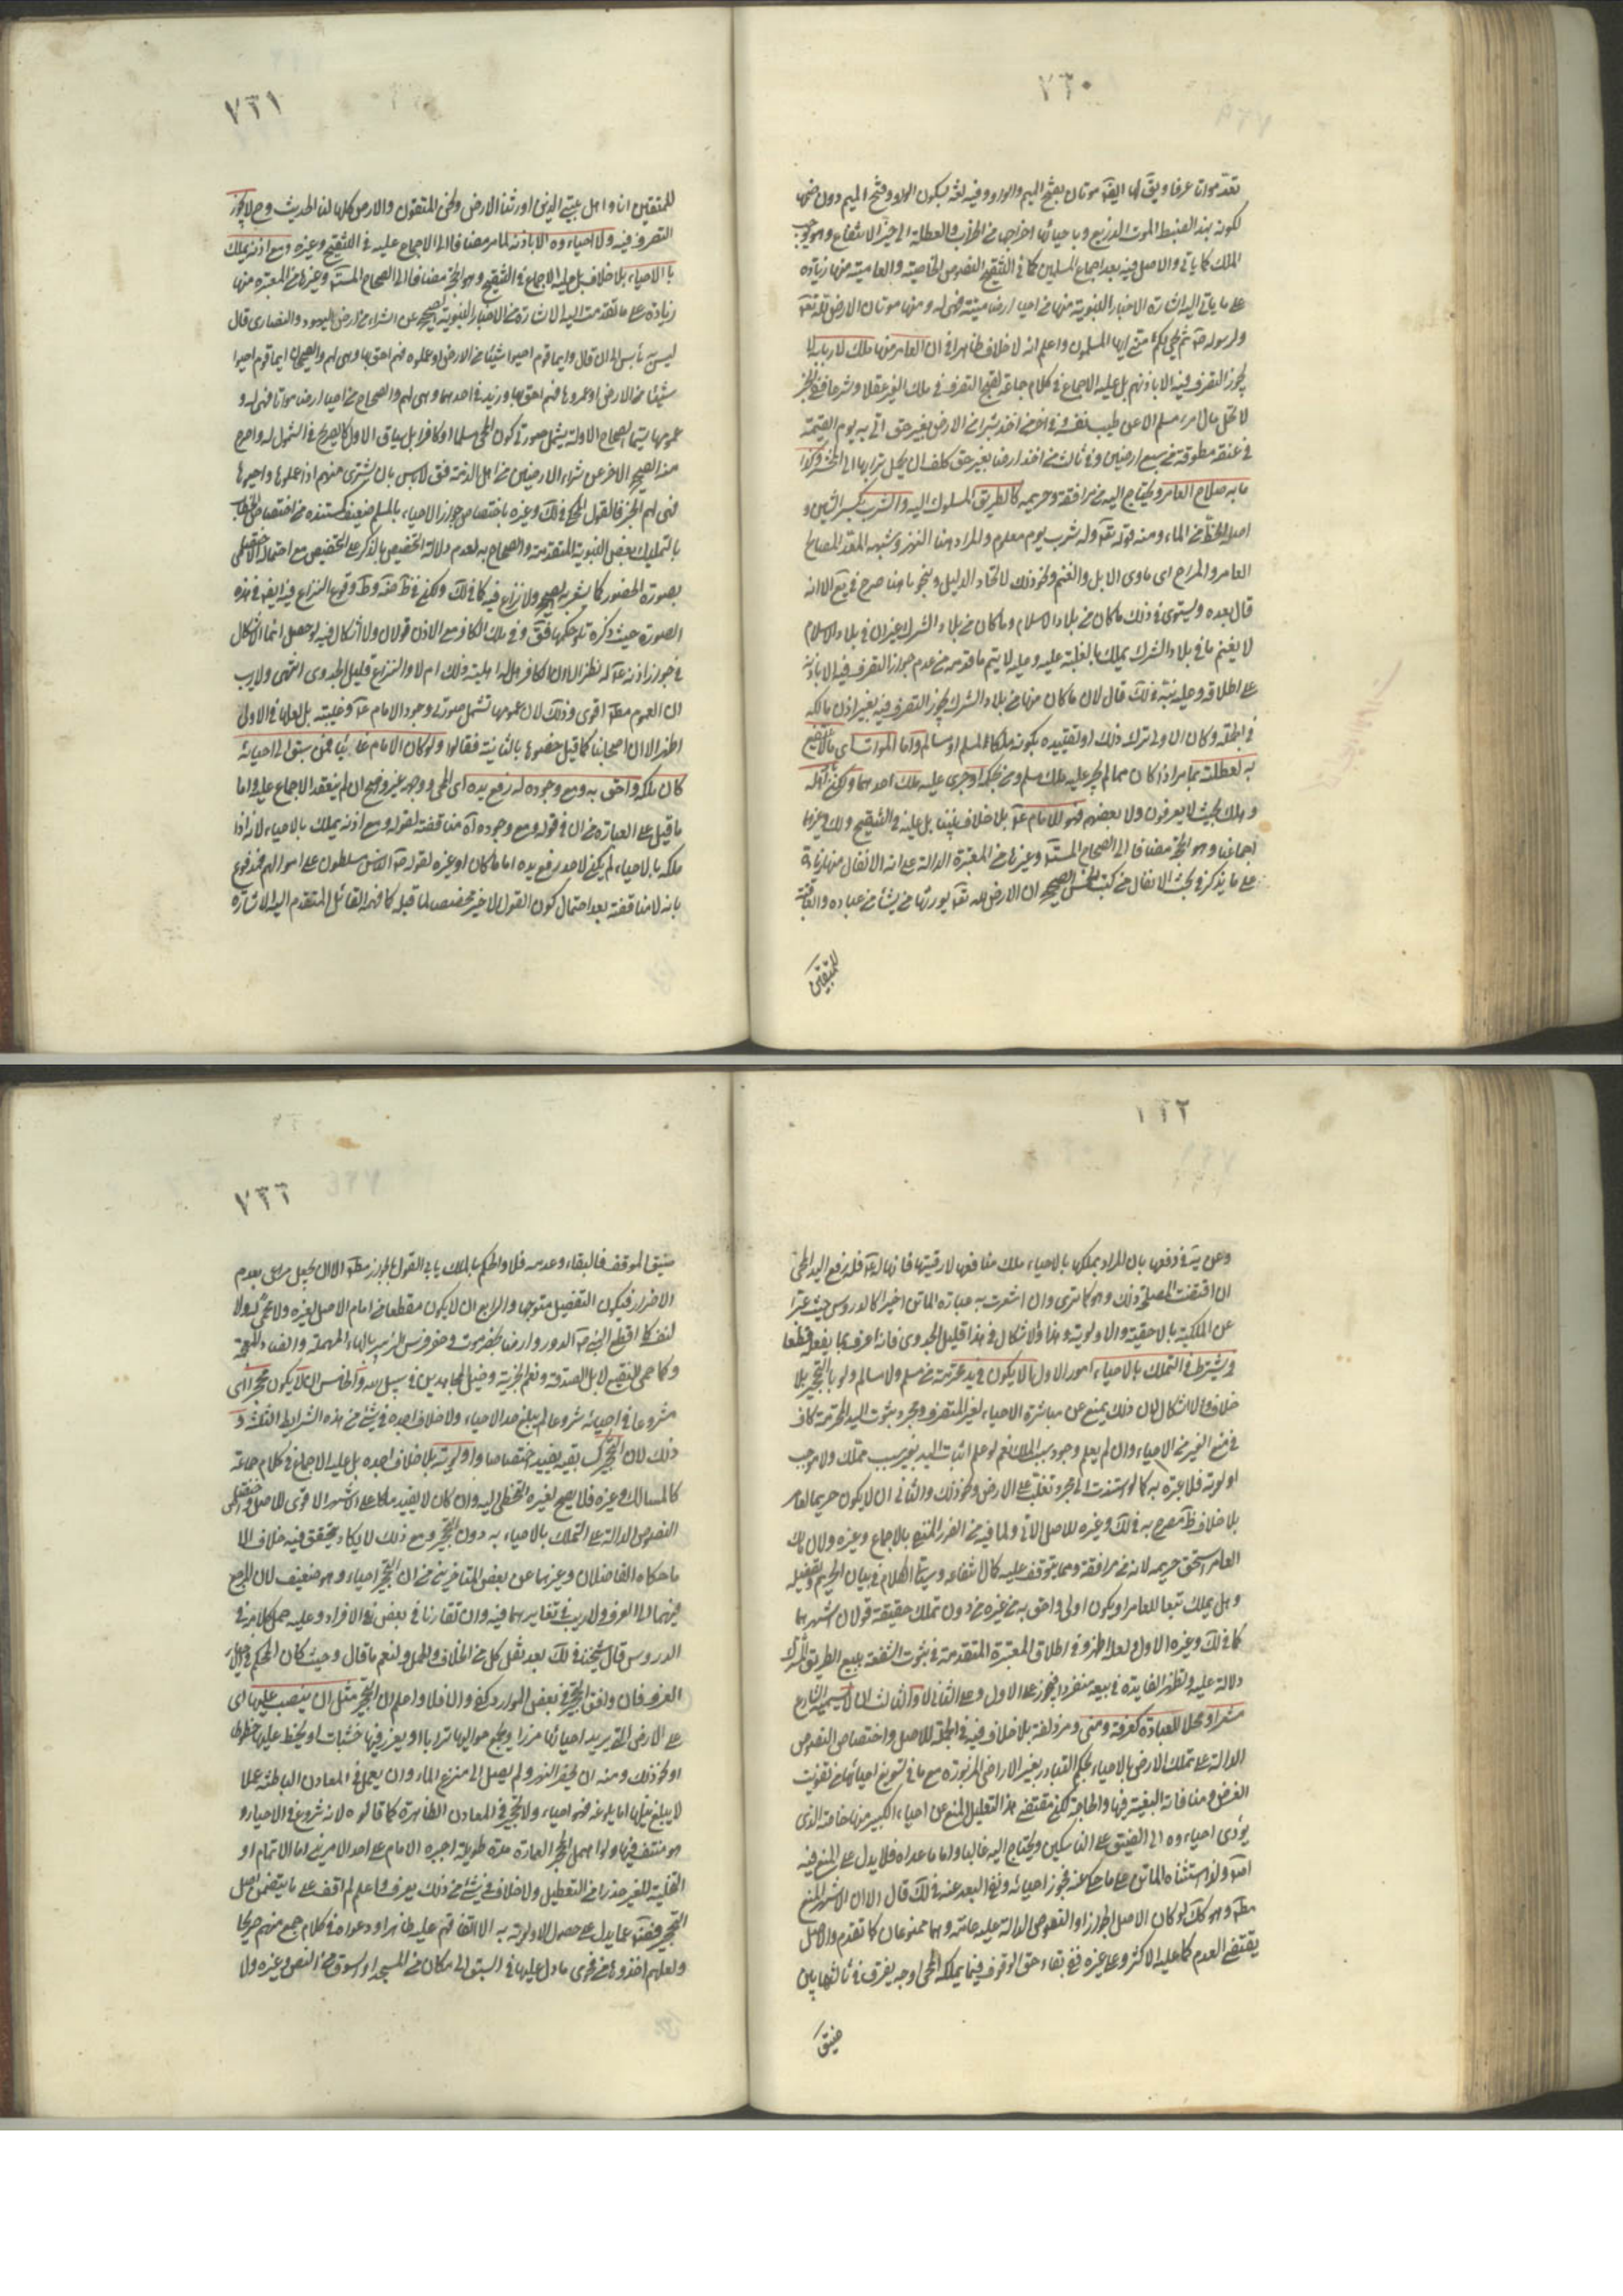 ٧٣٠
تعدّ مواتا عرفا ويق لها ايضا موتان بفتح الميم والواو وفيه لغة بسكون الواو وفتح الميم دون ضمها
لكونه بهذا الضبط الموت الذريع وباحيائها اخراجها من الخراب والعطلة الى حيز الانتفاع وهو يوجب
الملك كما ياتي والاصل فيه بعد اجماع المسلمين كما في التنقيح النصوص الخاصية والعامية منها زيادة
على ما ياتي اليه اشارة الاخبار النبوية منها من احيا ارضا ميتة فهي له ومنها موتان الارض لله تعه
ولرسوله ص ثم هي لكم مني ايها المسلمون واعلم انه لا خلاف ظاهرا في ان العامر منها ملك لاربابه لا
يجوز التصرف فيه الا باذنهم بل عليه الاجماع في كلام جماعة لقبح التصرف في ملك الغير عقلا وشرعا ففي الخبر
لا يحل مال امرء مسلم الا عن طيب نفسه وفي اخر من اخذ شبرا من الارض بغير حق اتي به يوم القيمة
في عنقه مطوقة من سبع ارضين وفي ثالث من اخذ ارضا بغير حق كلف ان يحمل ترابها الى المحشر وكذا
ما به صلاح العامر ويحتاج اليه من مرافقه وحريمه كالطريق المسلوك اليه والشرب بكسر الشين و
اصله الحظ من الماء ومنه قوله تعه وله شرب يوم معلوم والمراد هنا النهر وشبهه المعد لمصالح
العامر والمراح اى ماوى الابل والغنم ونحو ذلك لاتحاد الدليل وبنحو ما هنا صرح في يع الا انه
قال بعده ويستوى في ذلك ما كان من بلاد الاسلام وما كان من بلاد الشرك غير ان في بلاد الاسلام
لا يغنم ما في بلاد الشرك يملك بالغلبة عليه وعليه لا يتم ما قدمه من عدم جواز التصرف فيه الا باذنه
على اطلاقه وعليه نبه في لك قال لان ما كان منها من بلاد الشرك يجوز التصرف فيه بغير اذن مالكه
في الجملة وكان الاولى ترك ذلك او تقييده بكونه ملكا لمسلم او مسالم واما الموات اى ما لا ينتفع
به لعطلته مما مر اذا كان مما لم يجر عليه ملك مسلم ومن بحكمه او جرى عليه ملك احدهما ولكن باد اهله
وهلك بحيث لا يعرفون ولا بعضهم فهو للامام ع بلا خلاف بيننا بل عليه في التنقيح ولك وغيرهما
اجماعنا وهو الحجة مضافا الى الصحاح المستفيضة وغيرها من المعتبرة الدالة على انه الانفال منها زيادة
على ما يذكر في بحث الانفال من كتب الخمس الصحيح ان الارض لله تعه يورثها من يشاء من عباده والعاقبة
للمتقين
٧٣١
للمتقين انا واهل بيتي الذين اورثنا الارض ونحن المتقون والارض كلها لنا الحديث وح لا يجوز
التصرف فيه ولا احياءوه الا باذنه لما مر مضافا الى الاجماع عليه في التنقيح وغيره ومع اذنه يملك
بالاحياء بلا خلاف بل عليه الاجماع في التنقيح وهو الحجة مضافا الى الصحاح المستفيضة وغيرها من المعتبرة منها
زيادة على ما تقدمت اليه الاشارة من الاخبار النبوية الصحيح عن الشراء من ارض اليهود والنصارى قال
ليس به بأس الى ان قال وايما قوم احيوا شيئا من الارض او عملوه فهم احق بها وهي لهم والصحيحان ايما قوم احيوا
شيئا من الارض او عمروها فهم احق بها وزيد في احدهما وهي لهم والصحاح من احيا ارضا مواتا فهي له و
عمومها سيما الصحاح الاولة يشمل صورتي كون المحيي مسلما او كافرا بل سياق الاول كالصريح في الشمول له واصرح
منه الصحيح الاخر عن شراء الارضين من اهل الذمة فق لا باس بان يشترى منهم اذا عملوها واحيوها
فهي لهم الخبر فالقول المحكي في لك وغيره باختصاص جواز الاحياء بالمسلم ضعيف كمستنده من اختصاص الخطاب
بالتمليك بعض النبوية المتقدمة والصحاح به لعدم دلالة التخصيص بالذكر على التخصيص مع احتماله الاختصاص
بصورة الحضور كما يشعر به الصحيح ولا نزاع فيه كما في لك ولكن في ظ ضه وط وقوع النزاع فيه ايضا في هذه
الصورة حيث ذكره تلو حكمها فق وفي ملك الكافر مع الاذن قولان ولا اشكال فيه لو حصل انما الاشكال
في جواز اذنه ع له نظرا الى ان الكافر هل له اهلية ذلك ام لا والنزاع قليل الجدوى انتهى ولا ريب
ان العموم مطلقا اقوى وذلك لان عمومها تشمل صورتي وجود الامام ع وغيبته بل لعلها في الاولى
اظهر الا ان اصحابنا كما قيل خصوها بالثانية فقالوا ولو كان الامام غائبا فمن سبق الى احيائه
كان ملكه واحق به ومع وجوده له رفع يده اى المحيي ووجهه غير واضح ان لم ينعقد الاجماع عليه واما
ما قيل على العبارة من ان في قوله ومع وجوده اه مناقضة لقوله ومع اذنه يملك بالاحياء لانه اذا
ملكه بالاحياء لم يكن لاحد رفع يده اماما كان او غيره لقوله ص الناس مسلطون على اموالهم فمدفوع
بانه لا مناقضة بعد احتمال كون القول الاخير مخصصا لما قبله كما فهمه القائل المتقدم اليه الاشارة
٧٣٢
وعن يه في دفعها بان المراد بملكها بالاحياء ملك منافعها لا رقبتها فانها له ع فله رفع اليد المحيي
ان اقتضت المصلحة ذلك وهو كما ترى وان اشعرت به عبارة الماتن اخيرا كالدروس حيث عبرا
عن الملكية بالاحقية والاولوية وهذا والاشكال في هذا قليل الجدوى فانه اعرف بما يفعله قطعا
ويشترط في التملك بالاحياء امور الاول ان لا يكون في يد محترمة من مسلم ولا مسالم ولو بالتحجير بلا
خلاف ولا اشكال لان ذلك يمنع عن مباشرة الاحياء لغير المتصرف ومجرد ثبوت اليد المحترمة كاف
في منع الغير من الاحياء وان لم يعلم وجود سبب الملك نعم لو علم اثبات اليد بغير سبب مملك ولا موجب
اولوية فلا عبرة به كما لو استندت الى مجرد تغلب على الارض ونحو ذلك والثاني ان لا يكون حريما لعامر
بلا خلاف ظ مصرح به في لك وغيره للاصل الاتي ولما فيه من الضرر المنفي بالاجماع وغيره ولان مالك
العامر استحق حريمه لانه من مرافقه ومما يتوقف عليه كمال انتفاعه وسياتي الكلام في بيان الحريم وتفصيله
وهل يملك تبعا للعامر او يكون اولى واحق به من غيره من دون تملك حقيقة قولان اشهرهما
كما في لك وغيره الاول ولعله اظهر وفي اطلاق المعتبرة المتقدمة في ثبوت الشفعة ببيع الطريق المشترك
دلالة عليه وتظهر الفايدة في بيعه منفردا فيجوز على الاول وعلى الثاني لا والثالث ان لا يسميه الشارع
مشعرا ومحلا للعبادة كعرفة ومنى ومزدلفة بلا خلاف فيه في الجملة للاصل واختصاص النصوص
الدالة على تملك الارض بالاحياء بحكم التبادر بغير الاراضي المزبورة مع ما في تسويغ احيائها من تفويت
الغرض ومنافاته البغية فيها والحاجة لكن مقتضى هذا التعليل المنع عن احياء الكثير منها خاصة الذى
يؤدى احياءوه الى الضيق على الناسكين ويحتاج اليه غالبا واما ما عداه فلا يدل على المنع فيه
اصلا ولذا استثناه الماتن على ما حكى عنه فجوز احيائه ونفى البعد عنه في لك قال الا ان الاشهر المنع
مطلقا وهو كك لو كان الاصل الجواز او النصوص الدالة عليه عامة وهما ممنوعان كما تقدم والاصل
يقتضي العدم كما عليه الاكثر وعلى غيره ففي بقاء حق الوقوف فيما يملكه المحيي اوجه يفرق في ثالثها بين
ضيق
٧٣٣
ضيق الموقف فالبقاء وعدمه فلا والحكم بالملك يابى القول بالجواز مطلقا الا ان يجعل مراعى بعدم
الاضرار فيكون التفصيل متوجها والرابع ان لا يكون مقطعا من امام الاصل لغيره ولا محمي له ولا
لنفسه كما اقطع النبي ص الدور وارضا بحضرموت وحضر فرس الزبير بالحاء المهملة والضاد المعجمة
وكما حمى النقيع لابل الصدقة ونعم الجزية وخيل المجاهدين في سبيل الله والخامس ان لا يكون محجرا اى
مشروعا في احيائه شروعا لم يبلغ حد الاحياء ولا خلاف اجده في شئ من هذه الشرايط الثلثة و
ذلك لان التحجير يفيد اختصاصا واولوية بلا خلاف اجده بل عليه الاجماع في كلام جماعة
كالمسالك وغيره فلا يصح لغيره التخطي اليه وان كان لا يفيد ملكا على الاشهر الاقوى للاصل واختصاص
النصوص الدالة على التملك بالاحياء به دون التحجير ومع ذلك لا يكاد يتحقق فيه خلاف الا
ما حكاه الفاضلان وغيرهما عن بعض المتاخرين من ان التحجير احياء وهو ضعيف لان المرجع
فيهما الى العرف ولا ريب في تغايرهما فيه وان تقارنا في بعض الافراد وعليه حمل كلامه في
الدروس قال شيخنا في لك بعد نقل كل من الخلاف والحمل ولنعم ما قال وحيث كان المحكم في الاحياء
العرف فان وافق التحجير في بعض الموارد كفى والا فلا واعلم ان التحجير مثل ان ينصب عليها اى
على الارض التي يريد احيائها مرزا ويجمع حواليها ترابا او يغرز فيها خشبات او يخط عليها خطوطا
او نحو ذلك ومنه ان يحفر النهر ولم يصل الى منزع الماء وان يعمل في المعادن الباطنة عملا
لا يبلغ نيلها اما بلوغه فهو احياء ولا تحجير في المعادن الظاهرة كما قالوه لانه شروع في الاحياء و
هو منتف فيها ولو اهمل المحجر العمارة مدة طويلة اجبره الامام على احد الامرين اما الاتمام او
التخلية للغير حذرا من التعطيل ولا خلاف في شئ من ذلك يعرف واعلم لم اقف على ما يتضمن اصل
التحجير فضلا عما يدل على حصول الاولوية به الا اتفاقهم عليه ظاهرا ودعواه في كلام جمع منهم صريحا
ولعلهم اخذوه من فحوى ما دل عليها في السبق الى مكان من المسجد او السوق من النص وغيره ولا